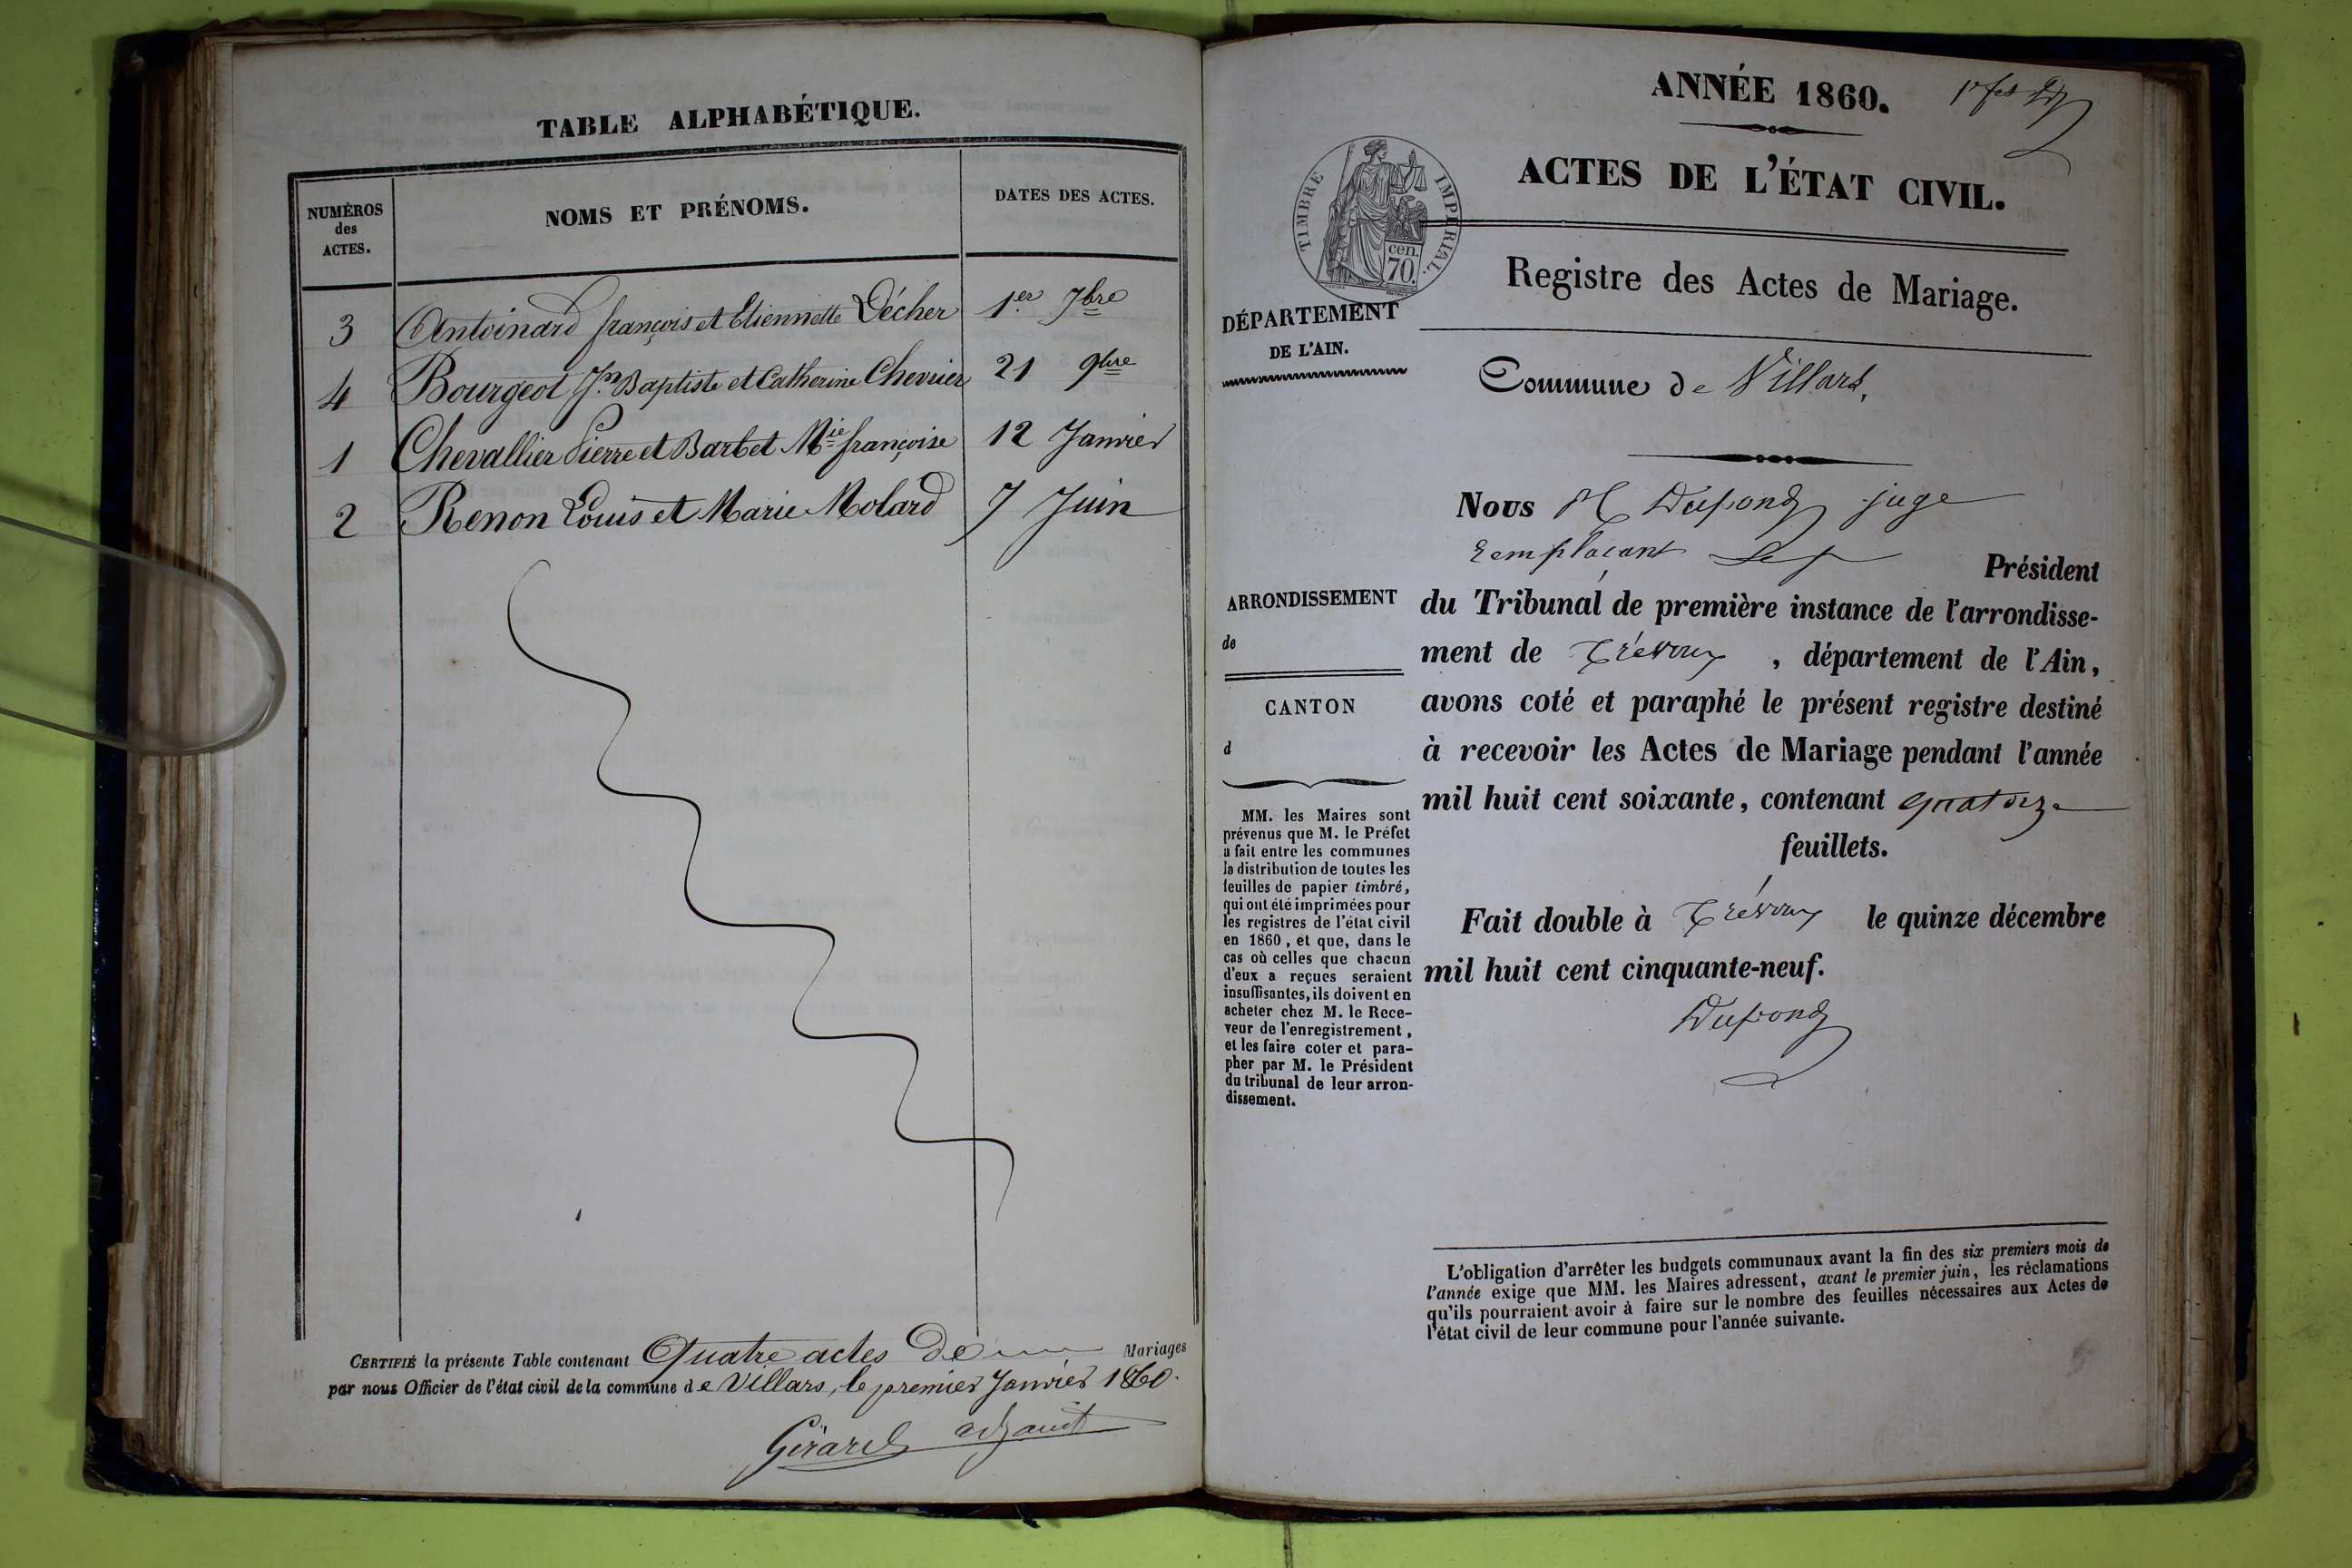 TABLE ALPHABÉTIQUE.
NUMÉROS
des
ACTES.
NOMS ET PRÉNOMS.
DATES DES ACTES.
3 Antoinard françois et Etiennette Décher 1.er 7bre
4 Bourgeot Jn Baptiste et Catherine Chevrier 21 9bre
1 Chevallier Pierre et Barbet Mie françoise 12 Janvier
2 Renon Louis et Marie Molard 7 Juin
CERTIFIÉ la présente Table contenant Quatre actes De Mariages
par nous Officier de l'état civil de la commune de Villars, le premier Janvier 1860.
Girard adjoint
ANNÉE 1860.
ACTES DE L'ÉTAT CIVIL.
TIMBRE IMPÉRIAL.
cen.
70.
Registre des Actes de Mariage.
DÉPARTEMENT
DE L'AIN.
Commune de Villars,
Nous M Dupond juge
remplaçant le p Président
du Tribunal de première instance de l'arrondisse-
ment de Trévoux, département de l'Ain,
avons coté et paraphé le présent registre destiné
à recevoir les Actes de Mariage pendant l'année
mil huit cent soixante, contenant quatorze
feuillets.
Fait double à Trévoux le quinze décembre
mil huit cent cinquante-neuf.
Dupond
ARRONDISSEMENT
de
CANTON
d
MM. les Maires sont
prévenus que M. le Préfet
a fait entre les communes
la distribution de toutes les
feuilles de papier timbré,
qui ont été imprimées pour
les registres de l'état civil
en 1860, et que, dans le
cas où celles que chacun
d'eux a reçues seraient
insuffisantes, ils doivent en
acheter chez M. le Rece-
veur de l'enregistrement,
et les faire coter et para-
pher par M. le Président
du tribunal de leur arron-
dissement.
L'obligation d'arrêter les budgets communaux avant la fin des six premiers mois de
l'année exige que MM. les Maires adressent, avant le premier juin, les réclamations
qu'ils pourraient avoir à faire sur le nombre des feuilles nécessaires aux Actes de
l'état civil de leur commune pour l'année suivante.